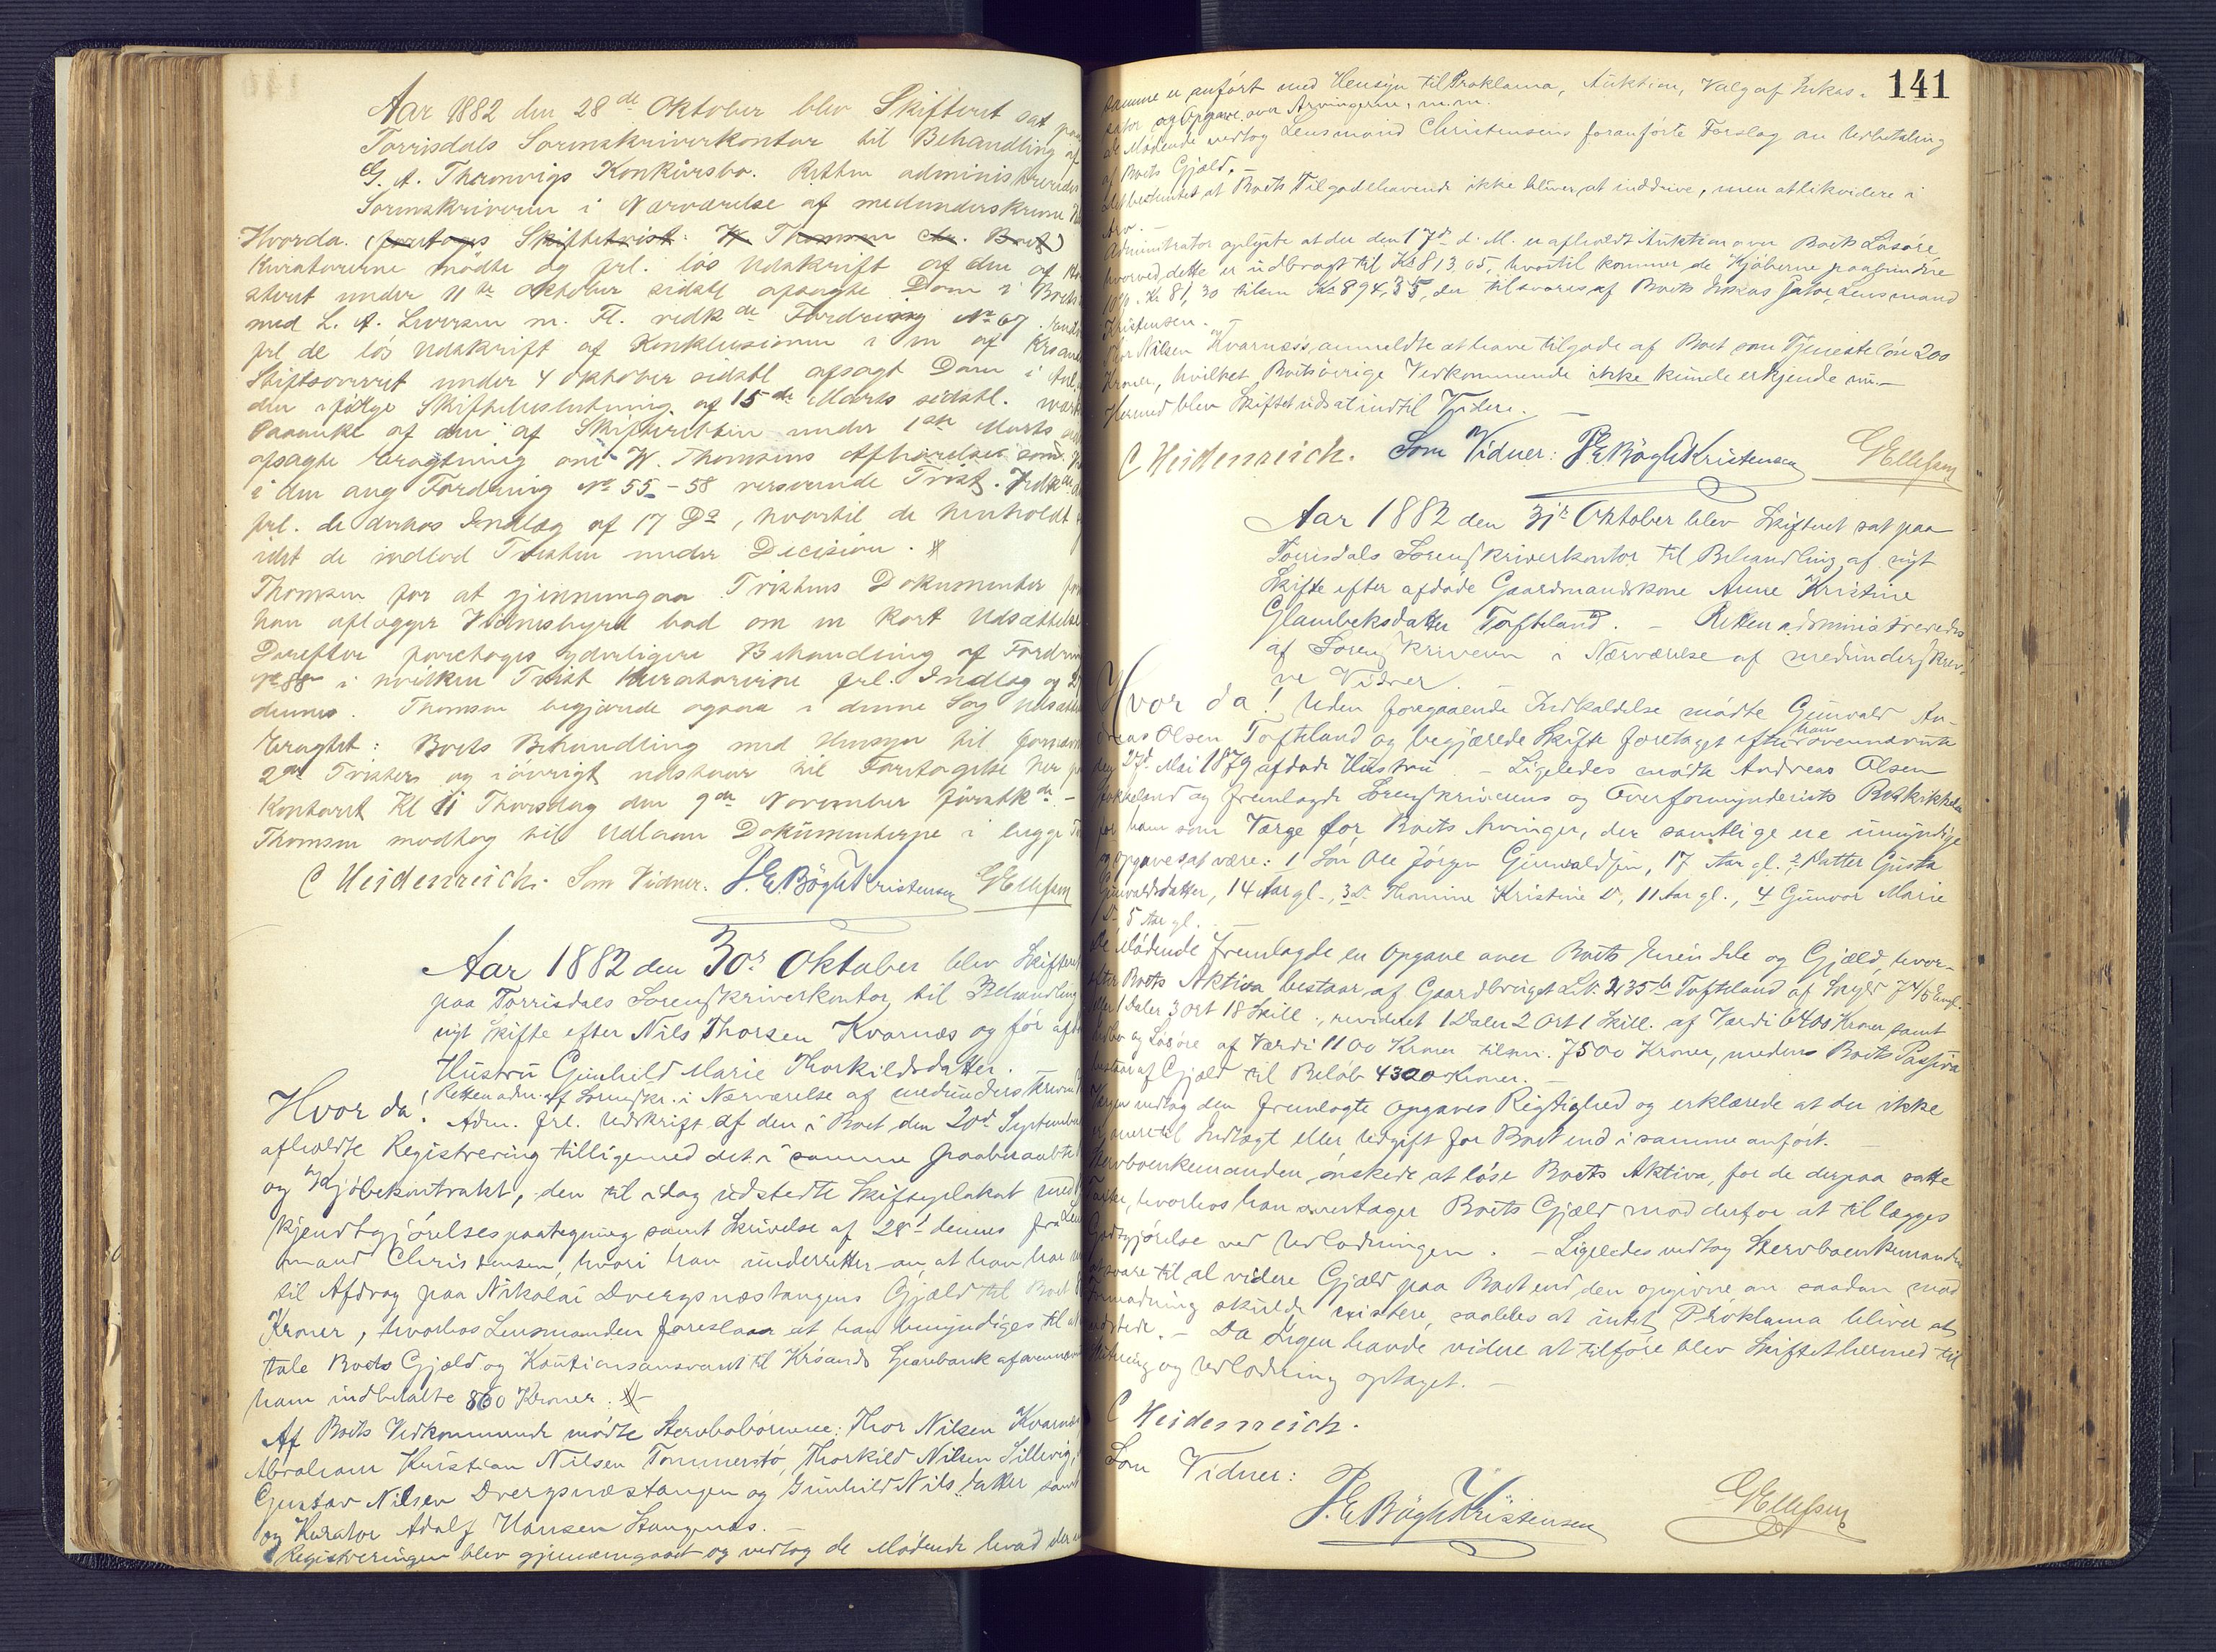 Aar 1882 den 28de Oktober blev Skifteret sat paa
Torrisdals Sorenskriverkontor til Behandling af
G. A. Thronvigs Konkursbo. Retten administreredes
Sorenskriveren i Nærværelse af medunderskrevne
Hvorda. (foretoges Skiftetvist: W. Thomsen ctr. Boet)
Kuratorerne mødte og frl. løs Udskrift af den af
steret under 11te Oktober sidstl afsagte Dom i Boets
med L. A. Iversen m. Fl. vedkde Fordring No 67.
frl de løs Udskrift af Konklusionen i en af Krsand
Stiftsoverret under 4 Oktober sidstl afsagt Dom i
den ifølge Skiftebeslutning af 15de Marts sidstl.
Paaanke af den af Skifteretten under 1ste Marts
afsagte Eragtning om W. Thomsens Afhørelse som
i den ang Fordring No 55-58 verserende Tvist.
frl. de derhos Indlæg af 17 Ds, hvortil de henholdt
idet de indlod Tvisten under Decision.
Thomsen for at gjennemgaa Tvistens Dokumenter
han aflægger Vidnesbyrd bad om en kort Udsættelse
Derefter foretoges yderligere Behandling af Fordring
No 88 i hvilken Tvist Kuratorerne frl. Indlæg og
dennes. Thomsen begjærede ogsaa i denne Sag
Eragtet: Boets Behandling med Hensyn til
2de Tvister og iøvrigt udstaar til Foretagelse her
Kontoret Kl 11 Thorsdag den 9de November førstkde -
Thomsen modtog til Udlaan Dokumenterne i begge
C Heidenreich. Som Vidner: P. E. Bögh Kristensen GEllefsen
Aar 1882 den 30s Oktober blev Skifteret
paa Torrisdals Sorenskriverkontor til Behandling
nyt Skifte efter Nils Thorsen Kvarnæs og før
Hustru Gunhild Marie Thorkildsdatter.
Retten adm. af Sorenskr. i Nærværelse af medunderskrevne
Hvor da! Adm. frl. Udskrift af den i Boet den 20d September
afholdte Registrering tilligemed det i samme paaberaabte
og Kjøbekontrakt, den til idag udstedte Skifteplakat med
kjendtgjørelsespaategning samt Skrivelse af 28d dennes fra
mand Christensen, hvori han underretter om, at han har
til Afdrag paa Nikolai Dvergsnæstangens Gjæld til Boet
Kroner, hvorhos Lensmanden foreslaar at han bemyndiges til
tale Boets Gjæld og Kautionsansvaret til Krsands Sparebank af
ham indbetalte 860 Kroner.
Af Boets Vedkommende mødte Stervbobørnene: Thor Nilsen Kvarnæs
Abraham Kristian Nilsen Tømmerstø, Thorkild Nilsen Sillevig,
Gustav Nilsen Dvergsnæstangen og Gunhild Nilsdatter samt
og Kurator Adolf Hansen Stangnæs. -
Registreringen blev gjennemgaaet og vedtog de Mødende hvad der
141
samme er anført med Hensyn til Proklama, Auktion, Valg af Inkas-
sator og Opgave over Arvingerne, m.m.
de Mødende vedtog Lensmand Christensens foranførte Forslag om Udbetaling
af Boets Gjæld. -
det bestemtes at Boets Tilgodehavende ikke bliver at inddrive, men at likvidere i
Arv. -
Administrator oplyste at der den 17d d. M. er afholdt Auktion over Boets Løsøre,
hvorved dette er udbragt til Kr 813,05, hvortil kommer de Kjøberne paagjældende
10% Kr 81,30 tilsm Kr 894,35, der tilsvares af Boets Inkassator, Lensmand
Kristensen. -
Thor Nilsen Kvarnæs, anmeldte at have tilgode af Boet som Tjenesteløn 200
Kroner, hvilket Boets øvrige Vedkommende ikke kunde erkjende nu. -
Hermed blev Skiftet udsat indtil Videre. -
C Heidenreich. Som Vidner: P. E. Bögh Kristensen GEllefsen
Aar 1882 den 31te Oktober blev Skifteret sat paa
Torrisdals Sorenskriverkontor til Behandling af nyt
Skifte efter afdøde Gaardmandskone Anne Kristine
Glambeksdatter Tofteland. - Retten administreredes
af Sorenskriveren i Nærværelse af medunderskrev-
ne Vidner. -
Hvor da! Uden foregaaende Indkaldelse mødte Gunvald An-
dreas Olsen Tofteland og begjærede Skifte foretaget efter hans ovennævnte
den 27d Mai 1879 afdøde Hustru. - Ligeledes mødte Andreas Olsen
Tofteland og fremlagde Sorenskriverens og Overformynderiets Beskikkelse
for ham som Værge for Boets Arvinger, der samtlige ere umyndige
og opgaves at være: 1 Søn Ole Jörgen Gunvaldsen, 17 Aar gl. 2 Datter Gusta
Gunvaldsdatter, 14 Aar gl., 3 D. Thomine Kristine D, 11 Aar gl., 4 Gunvor Marie
D. 5 Aar gl. -
De Mødende fremlagde en Opgave over Boets Eiendele og Gjæld, hvor-
efter Boets Aktiva bestaar af Gaardbruget L.N. 235b Tofteland af Skyld
eller 1 Daler 3 Ort 18 Skill., revideret 1 Daler 2 Ort 1 Skill. af Værdi 6400 Kroner samt
og Løsøre af Værdi 1100 Kroner tilsm. 7500 Kroner, medens Boets Passiva
bestaar af Gjæld til Beløb 4300 Kroner. -
Værgen vedtog den fremlagte Opgaves Rigtighed og erklærede at der ikke
Indtægt eller Udgift for Boet end i samme anført. -
Stervboenkemanden ønskede at løse Boets Aktiva, for de derpaa satte
Taxter, hvorhos han overtager Boets Gjæld mod derfor at tillægges
Godtgjørelse ved Udlodningen. - Ligeledes vedtog Stervboenkemanden
at svare til al videre Gjæld paa Boet end den opgivne om saadan mod
Formodning skulde existere, saaledes at intet Proklama bliver at
udstede. - Da Ingen havde videre at tilføre blev Skiftet hermed til
Slutning og Udlodning optaget. -
C Heidenreich.
Som Vidner:
P. E. Bögh Kristensen GEllefsen